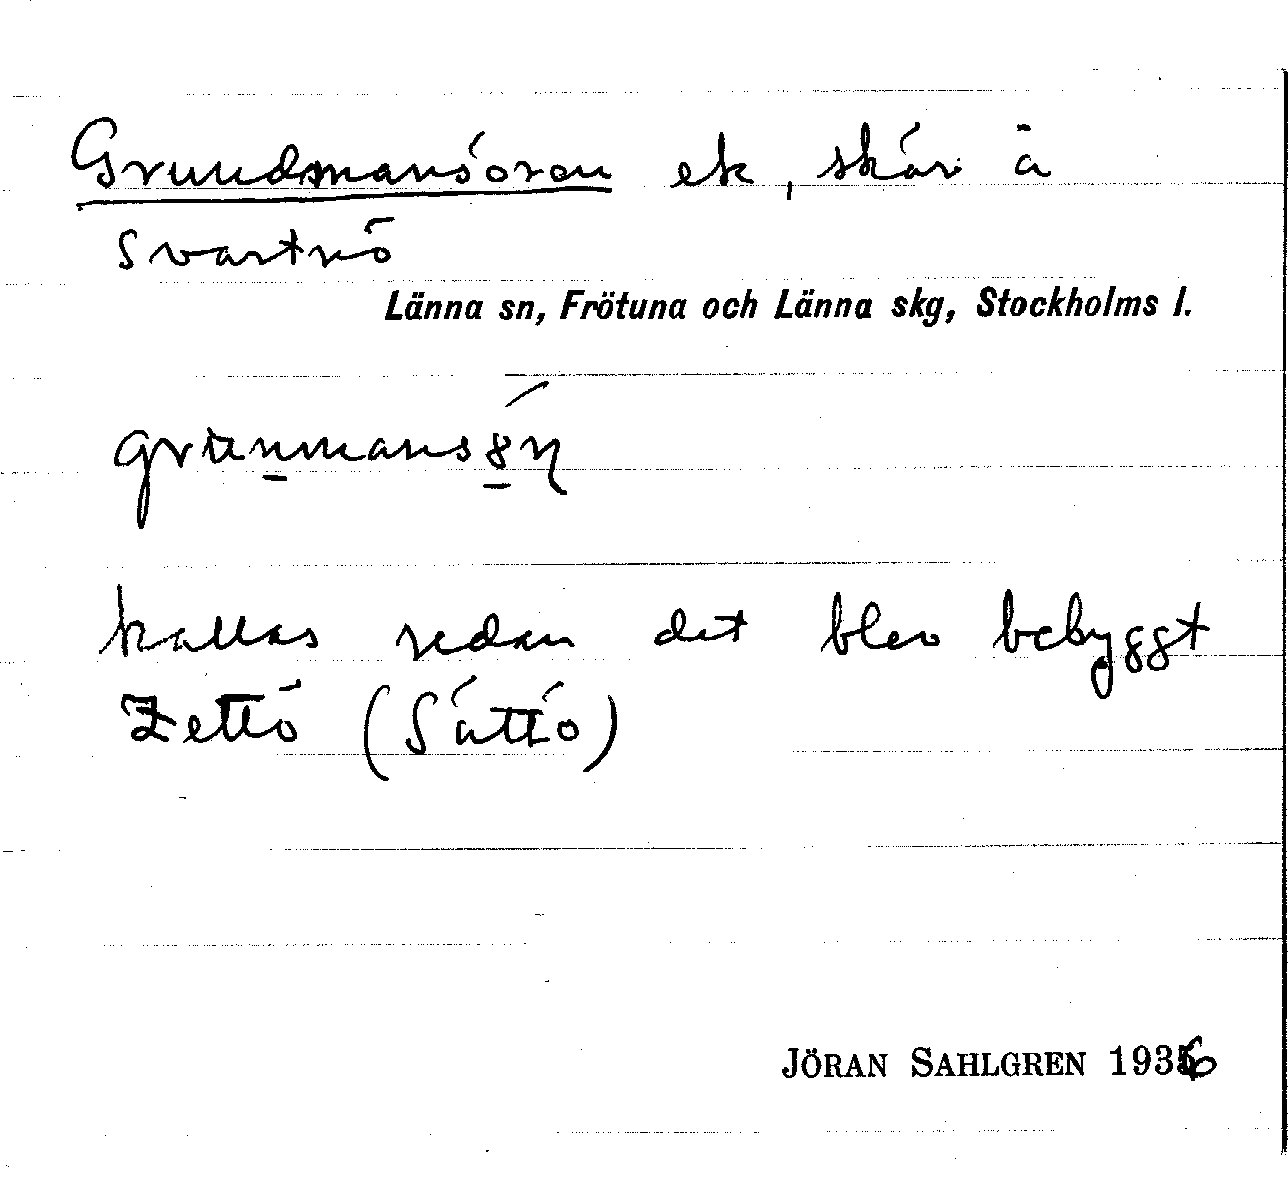 Grundmansören ek, skär å
Svartnö
Länna sn, Frötuna och Länna skg, Stockholms l.
kallas sedan det blev bebyggt
Zettö (Sättö)
JÖRAN SAHLGREN 1936